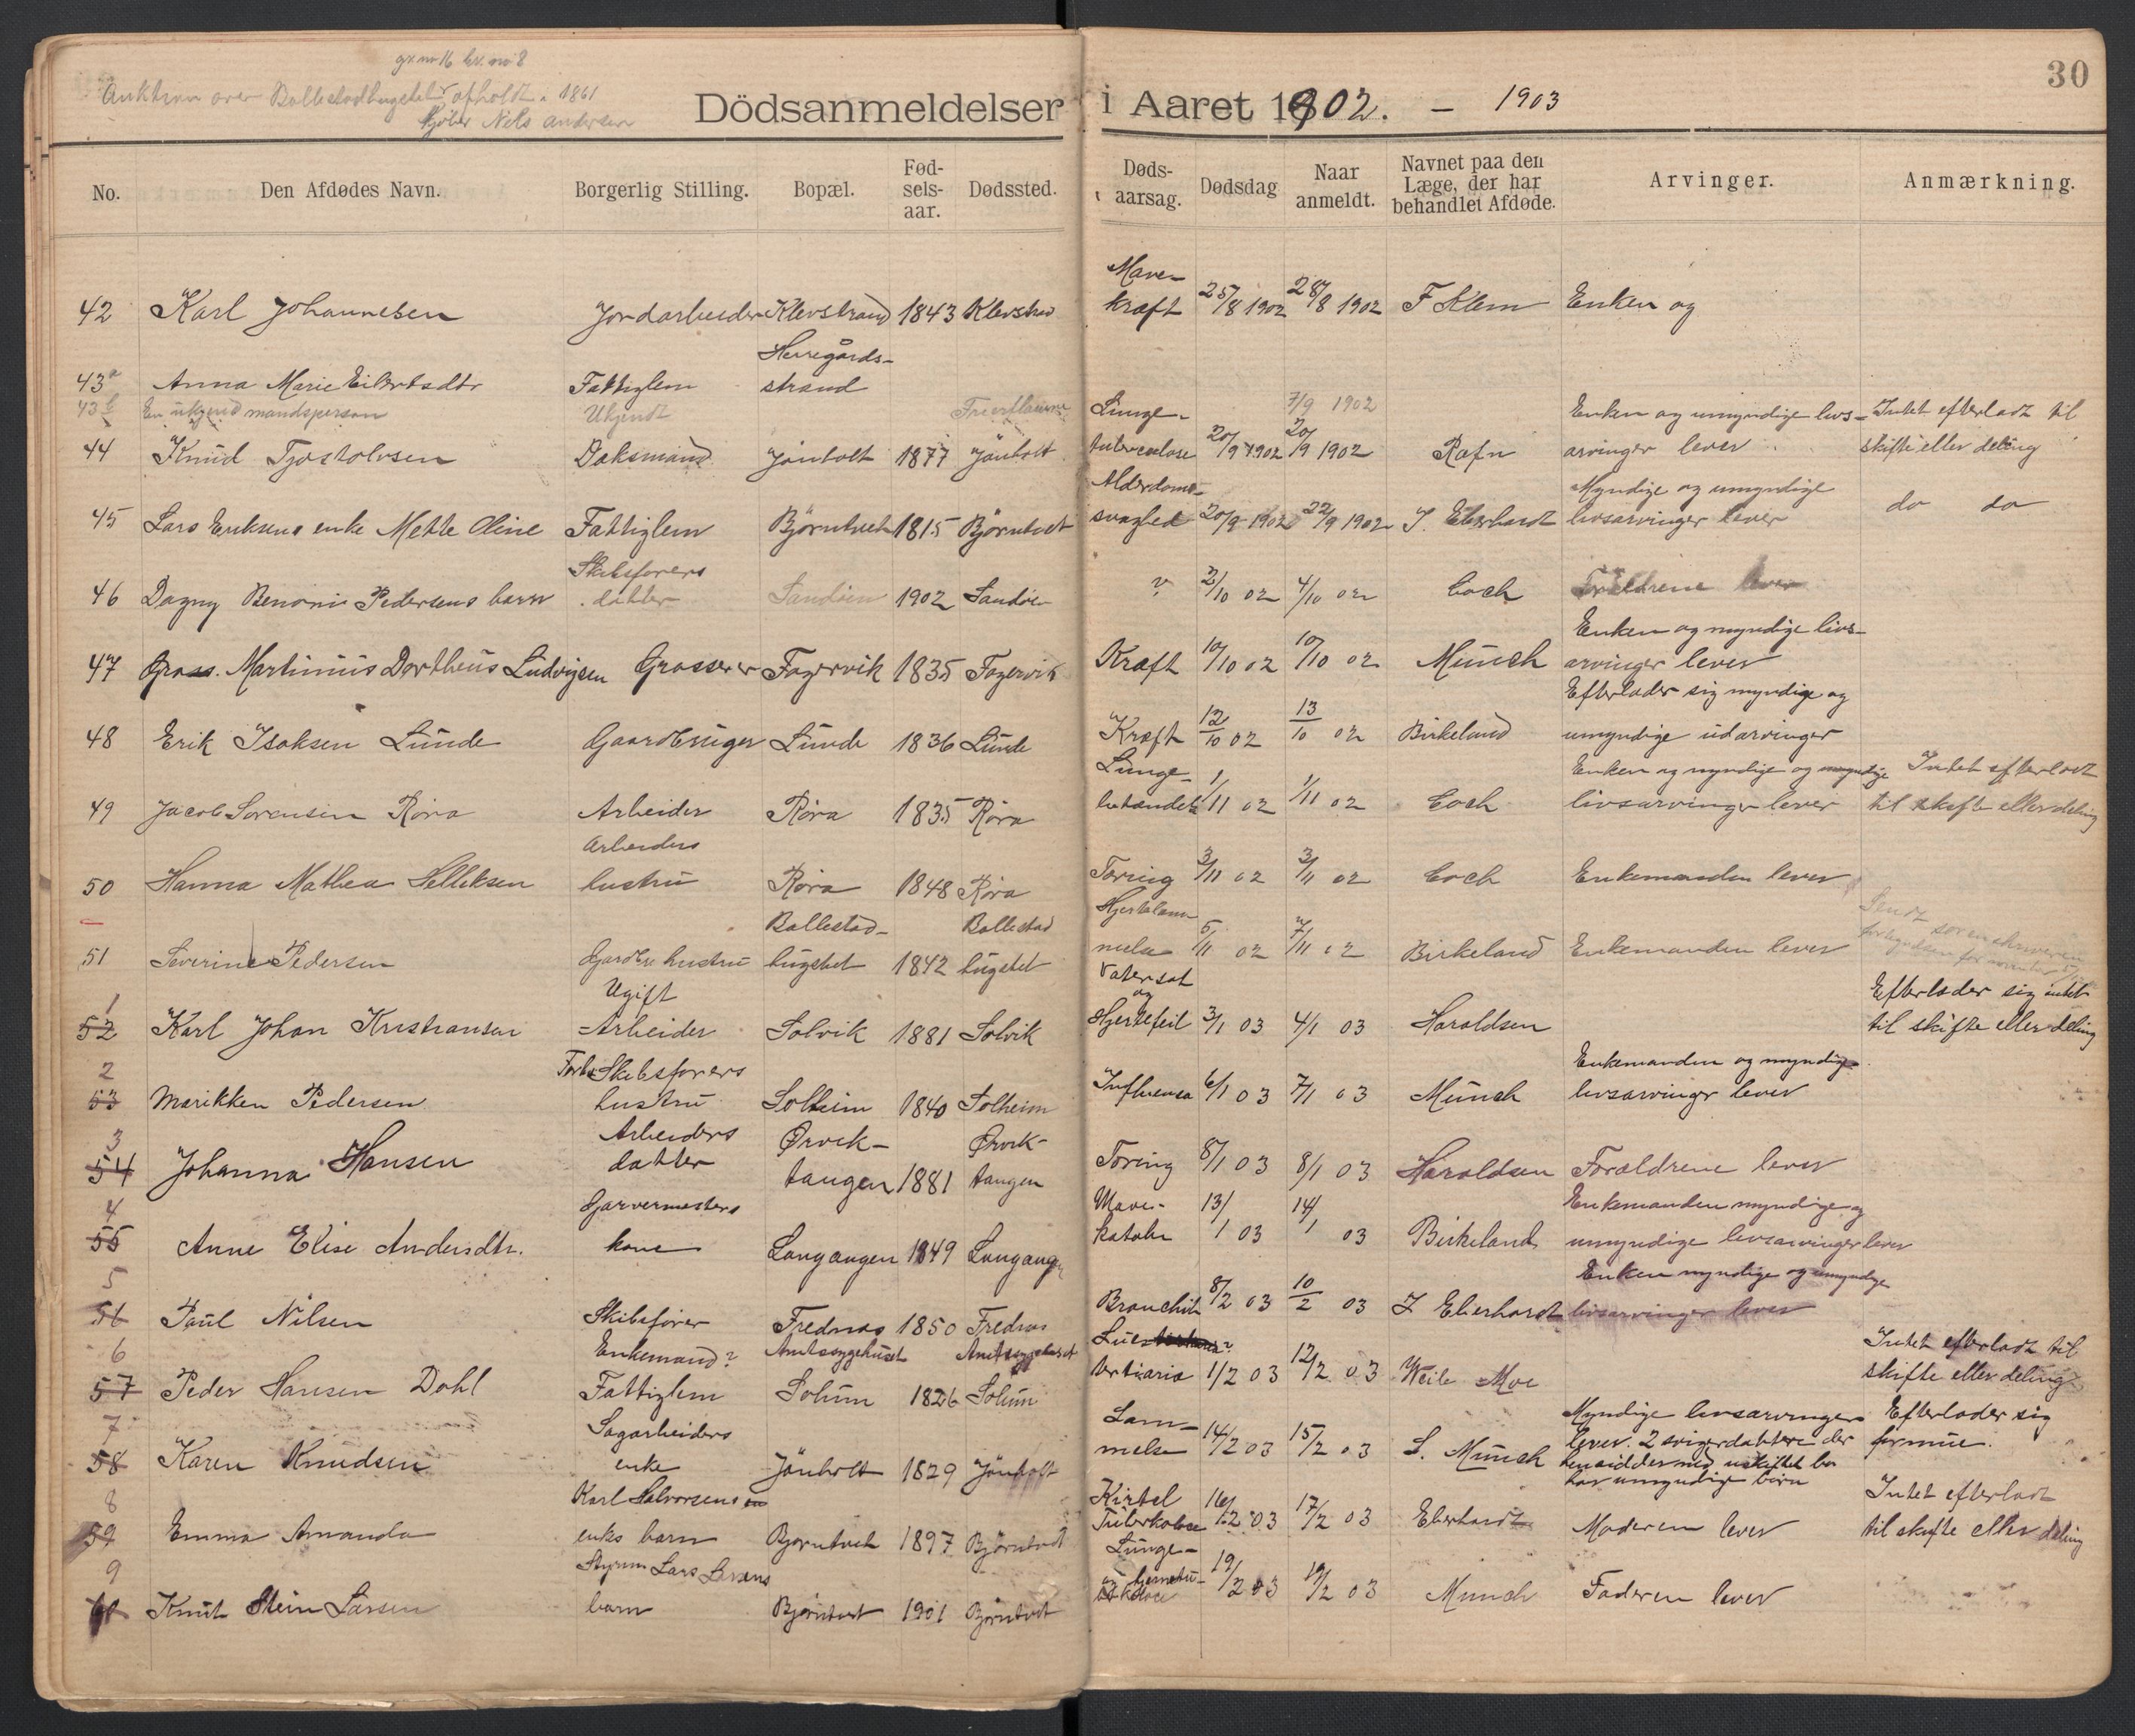 gr.no 16 br.no 8
Auktion over Ballestadhugstet afholdt i 1861
Kjøber Nels Andersen
Dödsanmeldelser i Aaret 1902. – 1903
30
No. Den Afdødes Navn. Borgerlig Stilling. Bopæl. Fødselsaar. Dødssted. Dødsaarsag. Dødsdag Naar anmeldt. Navnet paa den Læge, der har behandlet Afdøde. Arvinger. Anmærkning.
42 Karl Johannesen Jordarbeider Klevstrand 1843 Klevstrand Mavekræft 25/8 1902 28/8 1902 F Klem Enken og
43a Anna Marie Eilertsdtr Fattiglem Herregårdsstrand
43b En ukjend mandsperson Ukjendt Frierflauene 7/9 1902
44 Knud Tjostolvsen Daksmand Jönholt 1877 Jönholt Lungetuberculose 20/9 1902 20/9 1902 Rafn Enken og umyndige livsarvinger lever Intet efterladt til skifte eller deling
45 Lars Eriksens enke Mette Oline Fattiglem Björntvet 1815 Björntvedt Alderdomssvaghed 20/9 1902 22/9 1902 J. Eberhardt Myndige og umyndige livsarvinger lever do do
46 Dagny Benoni Pedersens barn Skibsførers datter Sandöen 1902 Sandöen ? 2/10 02 4/10 02 Coch Forældrene lever
47 Gross. Martinius Dortheus Ludvigsen Grosserer Fagervik 1835 Fagervik Kræft 10/10 02 10/10 02 Münch Enken og myndige livsarvinger lever
48 Erik Isaksen Lunde Gaardbruger Lunde 1836 Lunde Kræft 12/10 02 13/10 02 Birkeland Efterlader sig myndige og umyndige udarvinger
49 Jacob Sorensen Röra Arbeider Röra 1835 Röra Lungebetændelse 1/11 02 1/11 02 Coch Enken og myndige og umyndige livsarvinger lever Intet efterladt til skifte eller deling
50 Hanna Mathea Selleksen Arbeiders hustru Röra 1848 Röra Tæring 3/11 02 3/11 02 Coch Enkemanden lever
51 Severine Pedersen Gardbr hustru Ballestadhugstet 1842 Ballestadhugstet Hjertelammelse 5/11 02 7/11 02 Birkeland Enkemanden lever Sendt sorenskriveren
1 52 Karl Johan Kristiansen Ugift Arbeider Solvik 1881 Solvik Vatersot og Hjertefeil 3/1 03 4/1 03 Haraldsen Efterlader sig intet til skifte eller deling
2 53 Marikken Pedersen Forh. Skibsførers hustru Solheim 1840 Solheim Influensa 6/1 03 7/1 03 Münch Enkemanden og myndige livsarvinger lever
3 54 Johanna Hansen Arbeiders datter Ørviktangen 1881 Ørviktangen Tæring 8/1 03 8/1 03 Haraldsen Forældrene lever
4 55 Anne Elise Andersdtr. Garvermesters kone Langangen 1849 Langangen Mavekatahr 13/1 03 14/1 03 Birkeland Enkemanden myndige og umyndige livsarvinger lever
5 56 Paul Nilsen Skibsfører Frednæs 1850 Frednæs Bronchit 8/2 03 10/2 03 J Eberhardt Enken myndige og umyndige livsarvinger lever
6 57 Peder Hansen Dahl Enkemand? Fattiglem Amtssygehuset Solum 1826 Amtssygehuset Solum Lues tertiaria 1/2 03 12/2 03 Moe Intet efterladt til skifte eller deling
7 58 Karen Knudsen Sagarbeiders enke Jönholt 1829 Jönholt Lammelse 14/2 03 15/2 03 S. Münch Myndige livsarvinger lever. 2 svigerdöttre der hensidder med uskiftet bo har umyndige börn Efterlader sig formue.
8 59 Emma Amanda Karl Halvorsens enks barn Bjørntvedt 1897 Björntvedt Kirtel Tuberkolose 16/2 03 17/2 03 Eberhardt Moderen lever Intet efterladt til skifte eller deling
9 60 Knut Stein Larsen Styrm Lars Larsens barn Bjørntvet 1901 Björntvedt Lunge- og hjernetuberkolose 19/2 03 19/2 03 Münch Faderen lever